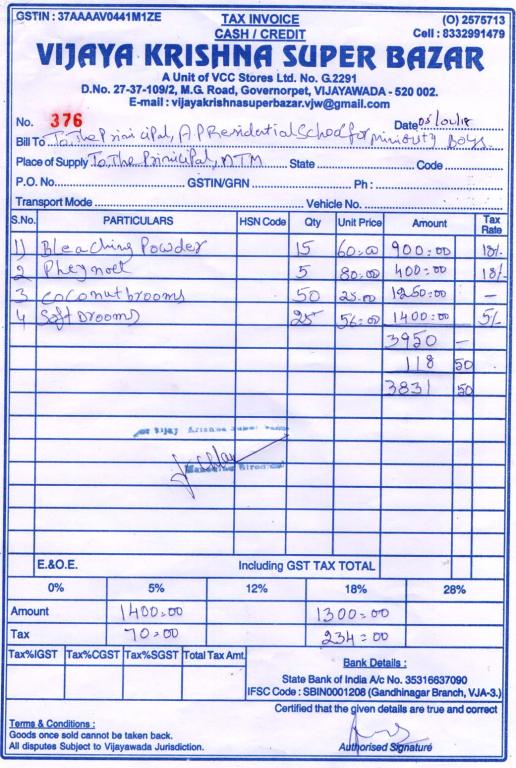 GSTIN : 37AAAAV0441M1ZE TAX INVOICE (O) 2575713
CASH / CREDIT Cell : 8332991479
VIJAYA KRISHNA SUPER BAZAR
A Unit of VCC Stores Ltd. No. G.2291
D.No. 27-37-109/2, M.G. Road, Governorpet, VIJAYAWADA - 520 002.
E-mail : vijayakrishnasuperbazar.vjw@gmail.com
No. 376 Date
Bill To To The Prinicipal, A P Residential School for Boys.
Place of Supply To. The Prinicipal, State Code
P.O. No. GSTIN/GRN Ph :
Transport Mode Vehicle No.
S.No. PARTICULARS HSN Code Qty Unit Price Amount Tax Rate
1) Bleaching Powder 15 60=00 900=00 18/-
2 5 80=00 400=00 18/-
3 coconut brooms 50 25=00 1250=00 —
4 Soft Brooms 25 56=00 1400=00 5/-
3950 —
118 50
3831 50
Krishna Super
E.&O.E. Including GST TAX TOTAL
0% 5% 12% 18% 28%
Amount 1400=00 1300=00
Tax 70=00 234=00
Tax%IGST Tax%CGST Tax%SGST Total Tax Amt.
Bank Details :
State Bank of India A/c No. 35316637090
IFSC Code : SBIN0001208 (Gandhinagar Branch, VJA-3.)
Certified that the given details are true and correct
Terms & Conditions :
Goods once sold cannot be taken back.
All disputes Subject to Vijayawada Jurisdiction.
Authorised Signature